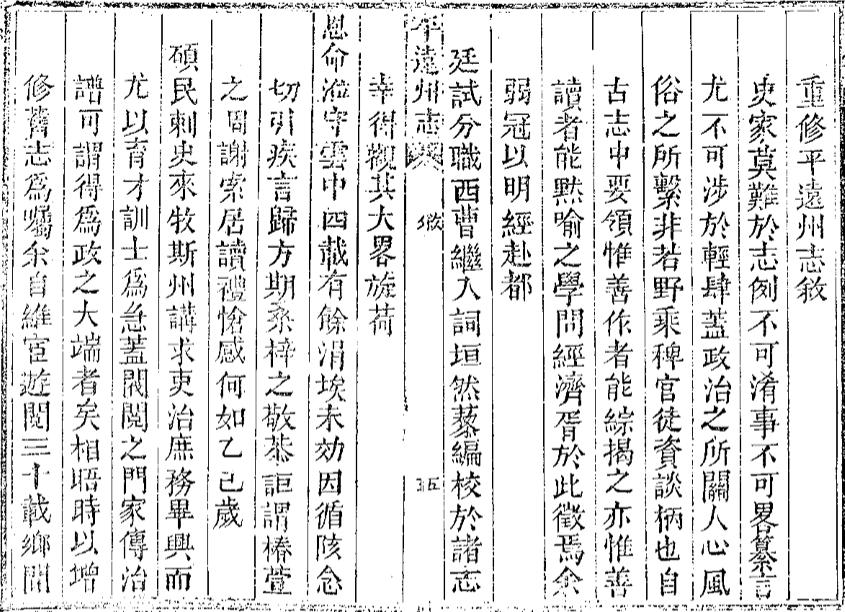 重修平遠州志敘
史家莫難於志例不可淆事不可畧纂言
尤不可涉於輕肆蓋政治之所關人心風
俗之所繫非若野乘稗官徒資談柄也自
古志中要領惟善作者能綜揭之亦惟善
讀者能默喻之學問經濟胥於此徵焉余
弱冠以明經赴都
廷試分職西曹繼入詞垣然藜編校於諸志
平遠州志 敘 五
幸得觀其大畧旋荷
恩命涖守雲中四載有餘涓埃未効因循陔念
切引疾言歸方期桑梓之敬恭詎謂椿萱
之周謝索居讀禮愴感何如乙巳歲
碩民刺史來牧斯州講求吏治庶務畢興而
尤以育才訓士為急蓋閥閱之門家傳治
譜可謂得為政之大端者矣相晤時以增
修舊志為囑余自維宦遊閱三十載鄉閭